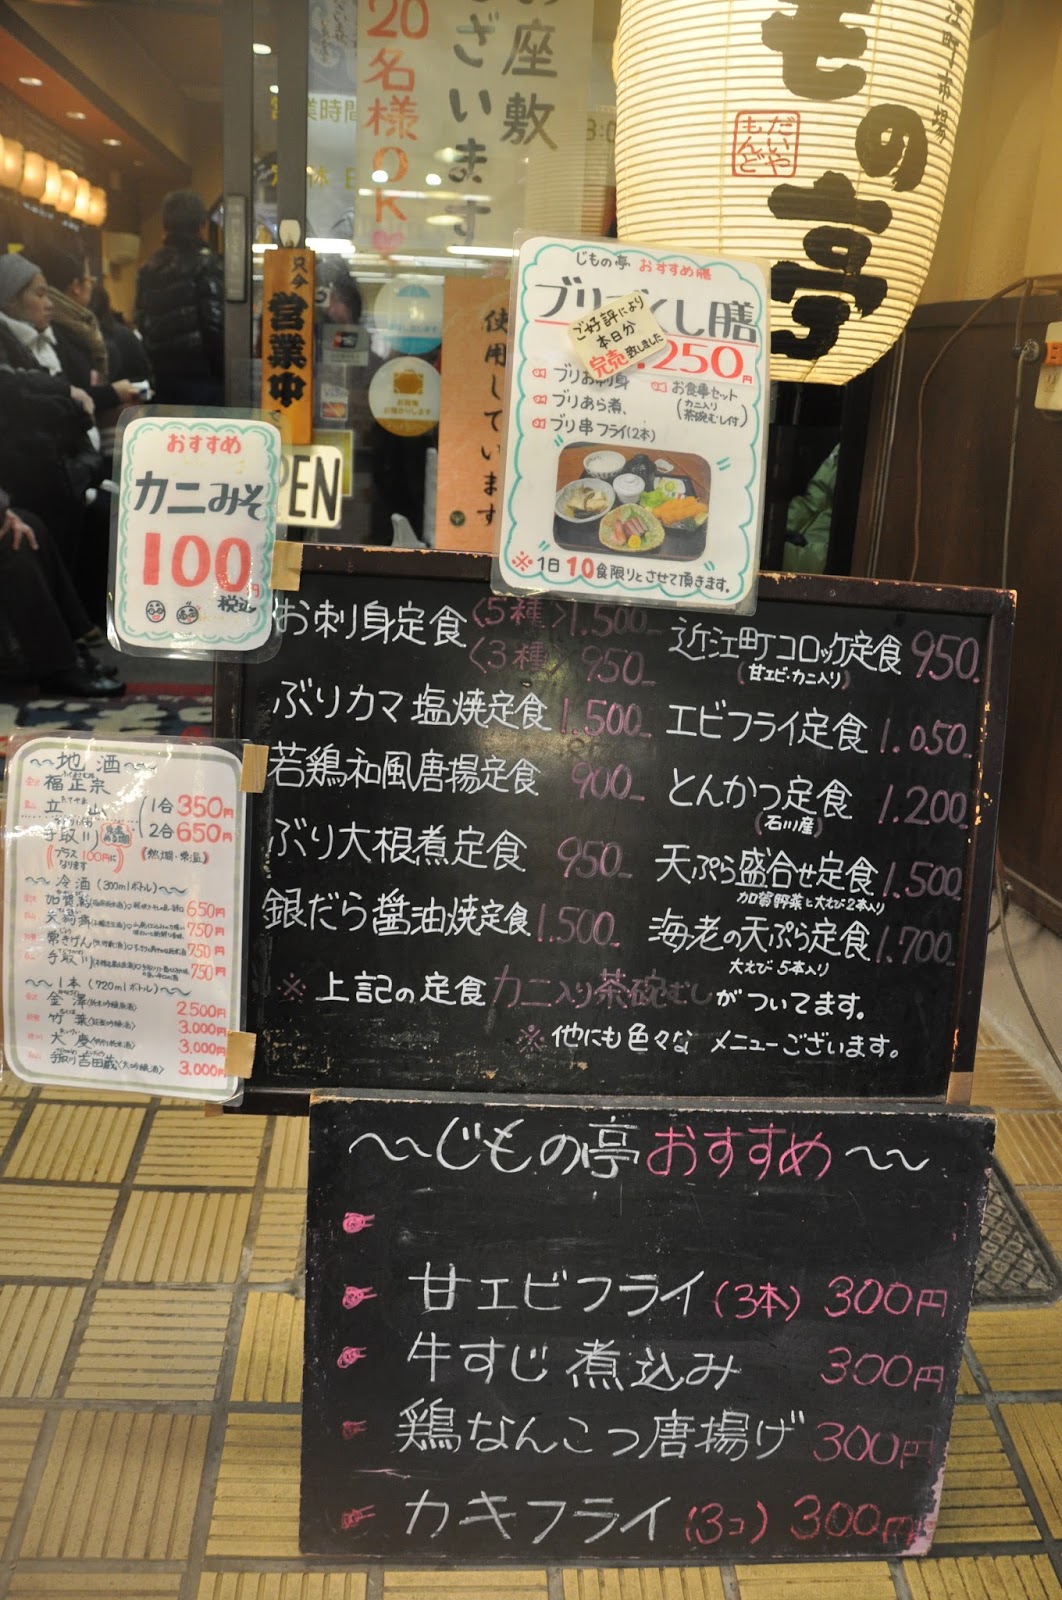 お座敷
ざいます
20名様OK♥
営業時間
江町市場
もの亭
だいや
もんど
只今
営業中
OPEN
使用しています
じもの亭 おすすめ膳
ブリ
くし膳
250円
ご好評により
本日分
完売致しました
ブリお刺身
ブリあら煮、
ブリ串フライ(2本)
お食事セット
(カニ入り
茶碗むし付)
※1日10食限りとさせて頂きます。
おすすめ
カニみそ
100円
税込
お刺身定食〈5種〉1.500
〈3種〉950
ぶりカマ塩焼定食 1.500
若鶏和風唐揚定食 900
ぶり大根煮定食 950
銀だら醤油焼定食 1.500
近江町コロッケ定食 950
(甘エビ・カニ入り)
エビフライ定食 1.050
とんかつ定食 1.200
(石川産)
天ぷら盛合せ定食 1.500
加賀野菜と大えび2本入り
海老の天ぷら定食 1.700
大えび5本入り
※上記の定食カニ入り茶碗むしがついてます。
※他にも色々な メニューございます。
〜〜地酒〜〜
福正宗
立山
手取川
1合350円
2合650円
(プラス100円に
なります)
《熱燗・常温》
〜〜冷酒(300mlボトル)〜〜
加賀鳶
650円
天狗舞
750円
常きげん
750円
手取川
750円
〜〜1本(720mlボトル)〜〜
金澤 2.500円
竹葉 3.000円
大慶 3.000円
手取川吉田蔵〈大吟醸酒〉 3.000円
〜〜じもの亭おすすめ〜〜
甘エビフライ(3本) 300円
牛すじ煮込み 300円
鶏なんこつ唐揚げ 300円
カキフライ(3コ) 300円